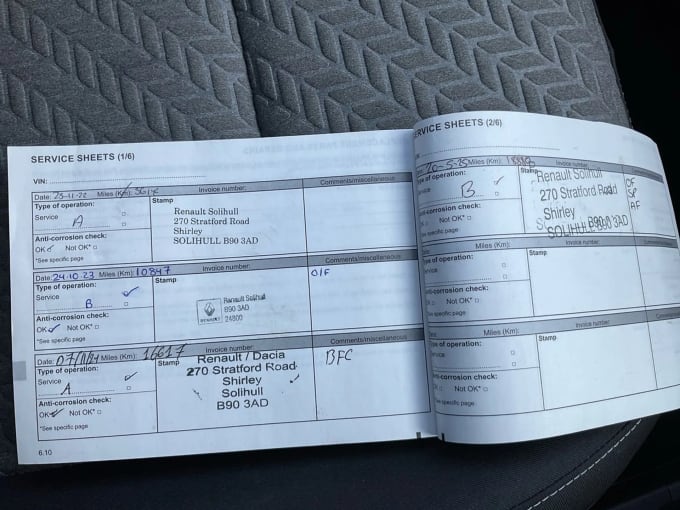 SERVICE SHEETS (1/6)
VIN:
Date: 25-11-22 Miles (Km): Invoice number:
Type of operation:
Service
A
Anti-corrosion check:
OK Not OK*
*See specific page
Stamp
Renault Solihull
270 Stratford Road
Shirley
SOLIHULL B90 3AD
Comments/miscellaneous
Date: 24.10.23 Miles (Km): 10847 Invoice number:
Type of operation:
Service
B
Anti-corrosion check:
OK Not OK*
*See specific page
Stamp
RENAULT
Renault Solihull
B90 3AD
24800
Comments/miscellaneous
O/F
Date: Miles (Km): 16617 Invoice number:
Type of operation:
Service
A
Anti-corrosion check:
OK Not OK*
*See specific page
Stamp
Renault / Dacia
270 Stratford Road
Shirley
Solihull
B90 3AD
Comments/miscellaneous
BFC
6.10
SERVICE SHEETS (2/6)
VIN:
20-5-25 Miles (Km): Invoice number:
Type of operation:
Service
B
Anti-corrosion check:
Not OK*
*See specific page
Stamp
Renault Solihull
270 Stratford Road
Shirley
SOLIHULL B90 3AD
Comments/miscellaneous
OF
AF
Miles (Km): Invoice number:
Type of operation:
Service
Anti-corrosion check:
Not OK*
*See specific page
Stamp
Comments/miscellaneous
Miles (Km): Invoice number:
Type of operation:
Service
Anti-corrosion check:
OK Not OK*
*See specific page
Stamp
Comments/miscellaneous